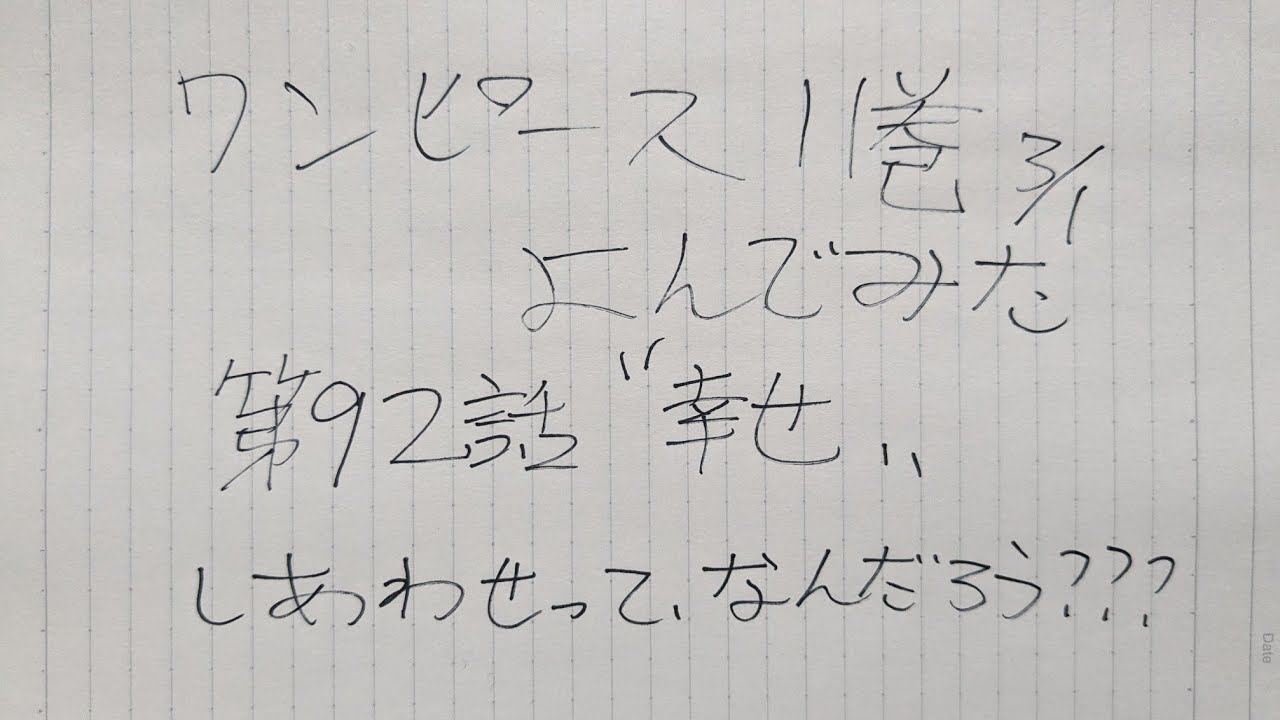 ワンピース 11巻 3/1
よんでみた
第92話 〃幸せ〃
しあわせって、なんだろう???
Date